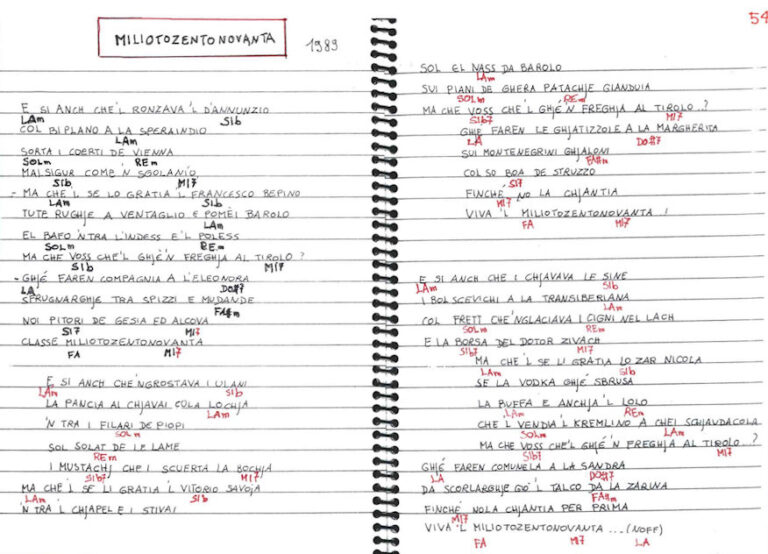 MILIOTOZENTONOVANTA
1989
E SI ANCH CHE'L RONZAVA'L D'ANNUNZIO
LAm SIb
COL BIPLANO A LA SPERAINDIO
LAm
SORTA I COERTI DE VIENNA
SOLm REm
MALSIGUR COME 'N SGOLANIO
SIb MI7
- MA CHE L SE LO GRATIA L FRANCESCO BEPINO
LAm SIb
TUTE RUGHJE A VENTAGLIO E POMEI BAROLO
LAm
EL BAFO 'NTRA L'INDESS E'L POLESS
SOLm REm
MA CHE VOSS CHE'L GHJE'N FREGHJA AL TIROLO ?
SIb MI7
- GHJE FAREN COMPAGNIA A L'ELEONORA
LA DO#7
SPRUGNARGHJE TRA SPIZZI E MUDANDE
FA#m
NOI PITORI DE GESIA ED ALCOVA
SI7 MI7
CLASSE MILIOTOZENTONOVANTA
FA MI7
E SI ANCH CHE'NGROSTAVA I ULANI
LAm SIb
LA PANCIA AI CHJAVAI COLA LOCHJA
LAm
'N TRA I FILARI DE PIOPI
SOLm
SOL SOLAT DE LE LAME
REm
I MUSTACHJ CHE I SCUERTA LA BOCHJA
SIb7 MI7
MA CHE L SE LI GRATIA L VITORIO SAVOJA
LAm SIb
'N TRA L CHJAPEL E I STIVAI
54
SOL EL NASS DA BAROLO
LAm
SUI PIANI DE GHERA PATACHJE GIANDUIA
SOLm REm
MA CHE VOSS CHE'L GHJE'N FREGHJA AL TIROLO..?
SIb7 MI7
GHJE FAREN LE GHJATIZZOLE A LA MARGHERITA
LA DO#7
SUI MONTENEGRINI GHJALONI
FA#m
COL SO BOA DE STRUZZO
SI7
FINCHE NO LA CHJANTIA
MI7
VIVA 'L MILIOTOZENTONOVANTA !
FA MI7
E SI ANCH CHE I CHJAVAVA LE SINE
LAm SIb
I BOLSCEVICHI A LA TRANSIBERIANA
LAm
COL FRETT CHE'NGLACIAVA I CIGNI NEL LACH
SOLm REm
E LA BORSA DEL DOTOR ZIVACH
SIb7 MI7
MA CHE L SE LI GRATIA LO ZAR NICOLA
LAm SIb
SE LA VODKA GHJE SBRUSA
LA BUFFA E ANCHJA'L LOLO
LAm REm
CHE L VENDIA'L KREMLINO A CHEI SCHJAUDACOLA
SOLm LAm
MA CHE VOSS CHE'L GHJE'N FREGHJA AL TIROLO..?
SIb7 MI7
GHJE FAREN COMUNELA A LA SANDRA
LA DO#7
DA SCORLARGHJE GIO'L TALCO DA LA ZARINA
FA#m
FINCHE NOLA CHJANTIA PER PRIMA
MI7
VIVA 'L MILIOTOZENTONOVANTA ...(NOFF)
FA MI7 LA